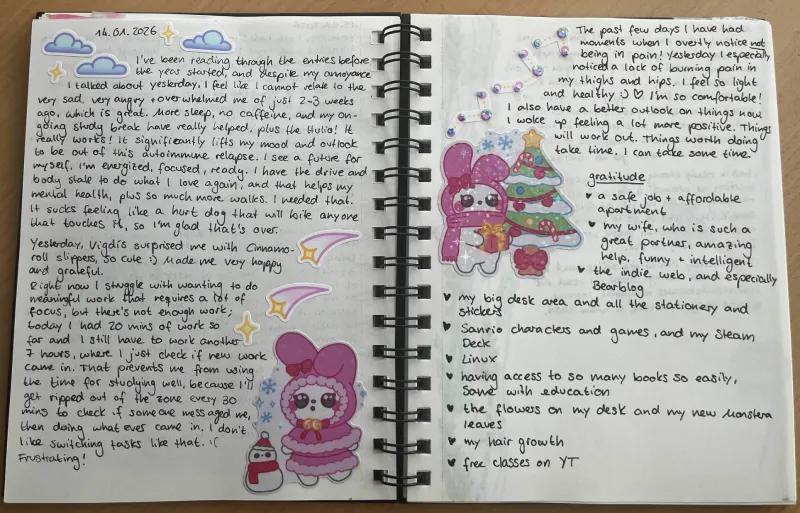 14.01.2026
I've been reading through the entries before
the year started, and despite my annoyance
I talked about yesterday, I feel like I cannot relate to the
very sad, very angry + overwhelmed me of just 2-3 weeks
ago, which is great. More sleep, no caffeine, and my on-
going study break have really helped, plus the Hutio! It
really works! It significantly lifts my mood and outlook
to be out of this autoimmune relapse. I see a future for
myself, I'm energized, focused, ready. I have the drive and
body state to do what I love again, and that helps my
mental health, plus so much more walks. I needed that.
It sucks feeling like a hurt dog that will bite anyone
that touches it, so I'm glad that's over.
Yesterday, Vigdis surprised me with Cinnamo-
roll slippers, so cute :) Made me very happy
and grateful.
Right now I struggle with wanting to do
meaningful work that requires a lot of
focus, but there's not enough work;
today I had 20 mins of work so
far and I still have to work another
7 hours, where I just check if new work
came in. That prevents me from using
the time for studying well, because I'll
get ripped out of the zone every 30
mins to check if someone messaged me,
then doing what ever came in. I don't
like switching tasks like that. :(
Frustrating!
The past few days I have had
moments when I overtly notice not
being in pain! Yesterday I especially
noticed a lack of burning pain in
my thighs and hips. I feel so light
and healthy :) ♡ I'm so comfortable!
I also have a better outlook on things now
I woke up feeling a lot more positive. Things
will work out. Things worth doing
take time. I can take some time.
gratitude
♥ a safe job + affordable
apartment
♥ my wife, who is such a
great partner, amazing
help, funny + intelligent
♥ the indie web, and especially
Bearblog
♥ my big desk area and all the stationery and
stickers
♥ Sanrio characters and games, and my Steam
Deck
♥ Linux
♥ having access to so many books so easily,
same with education
♥ the flowers on my desk and my new Monstera
leaves
♥ my hair growth
♥ free classes on YT